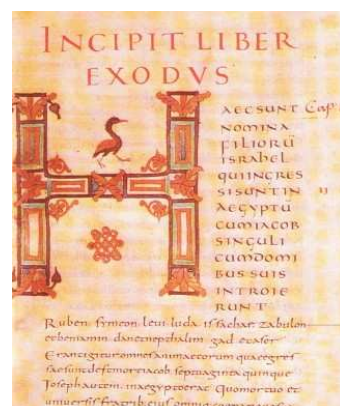 INCIPIT LIBER
EXODVS
AECSUNT Cap
NOMINA
FILIORŪ
ISRAHEL
QUIINGRES
SISUNTIN II
AEGYPTŪ
CUMIACOB
SINGULI
CUMDOMI
BUSSUIS
INTROIE
RUNT
Ruben symeon leui iuda issachar zabulon
etbeniamin danetnepthalim gad etaser
Erantigituromnesanimaeeorum quaeegres
saesuntdefemoreiacob septuaginta quinque
Ioseph autem inaegyptoerat Quomortuo et
uniuersis fratrib; eius omniq;